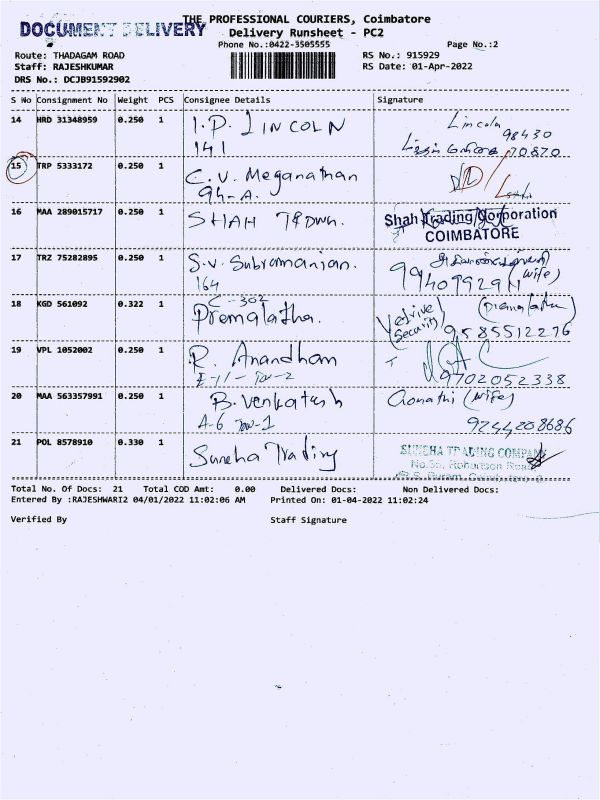 DOCUMENT DELIVERY
THE PROFESSIONAL COURIERS, Coimbatore
Delivery Runsheet - PC2
Phone No.:0422-3505555 Page No.:2
Route: THADAGAM ROAD RS No.: 915929
Staff: RAJESHKUMAR RS Date: 01-Apr-2022
DRS No.: DCJB91592902
S No Consignment No Weight PCS Consignee Details Signature
14 HRD 31348959 0.250 1 I.P. LINCOLN Lincoln
141 98430
70870
15 TRP 5333172 0.250 1 C.V. Meganathan
94-A.
16 MAA 289015717 0.250 1 SHAH Shah Trading Corporation
COIMBATORE
17 TRZ 75282895 0.250 1 S.V. Subramanian. (wife)
164
18 KGD 561092 0.322 1 C-302 (Premalatha)
Premalatha. Security 9585512276
19 VPL 1052002 0.250 1 R. Anandham
9702052338
20 MAA 563357991 0.250 1 B. Venkatesh Gomathi (wife)
A-6 9244208686
21 POL 8578910 0.330 1 Suneha Trading SUNEHA TRADING COMPANY
Robertson Road
Total No. Of Docs: 21 Total COD Amt: 0.00 Delivered Docs: Non Delivered Docs:
Entered By :RAJESHWARI2 04/01/2022 11:02:06 AM Printed On: 01-04-2022 11:02:24
Verified By Staff Signature